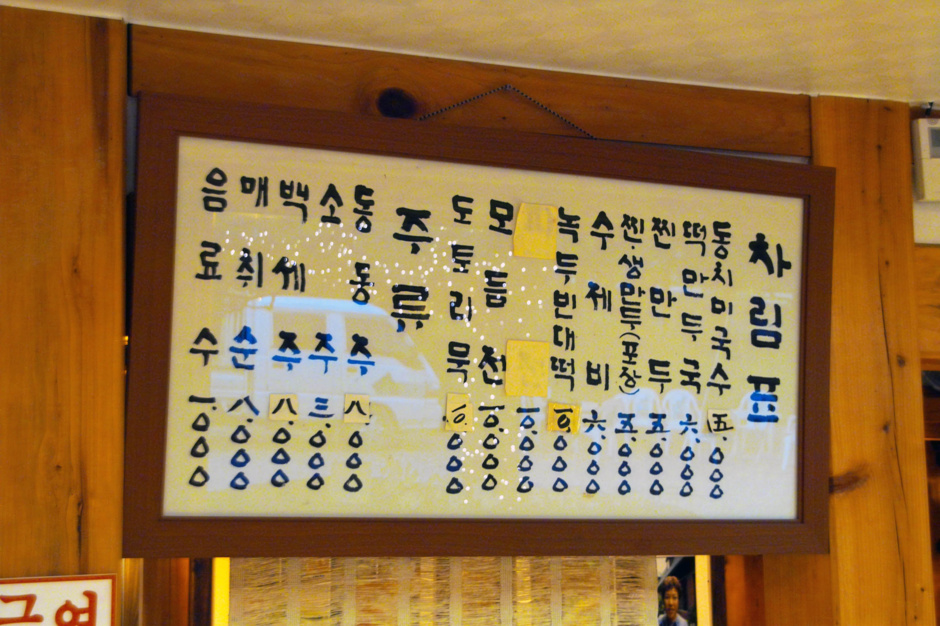 차림표
동치미국수 五.000
떡만두국 六.000
찐만두 五.000
찐생만두(포장) 五.000
수제비 六.000
녹두빈대떡 一0.000
一.000
모듬전 一.000
도토리묵 一0.000
주류
동동주 八.000
소주 三.000
백세주 八.000
매취순 八.000
음료수 一.000